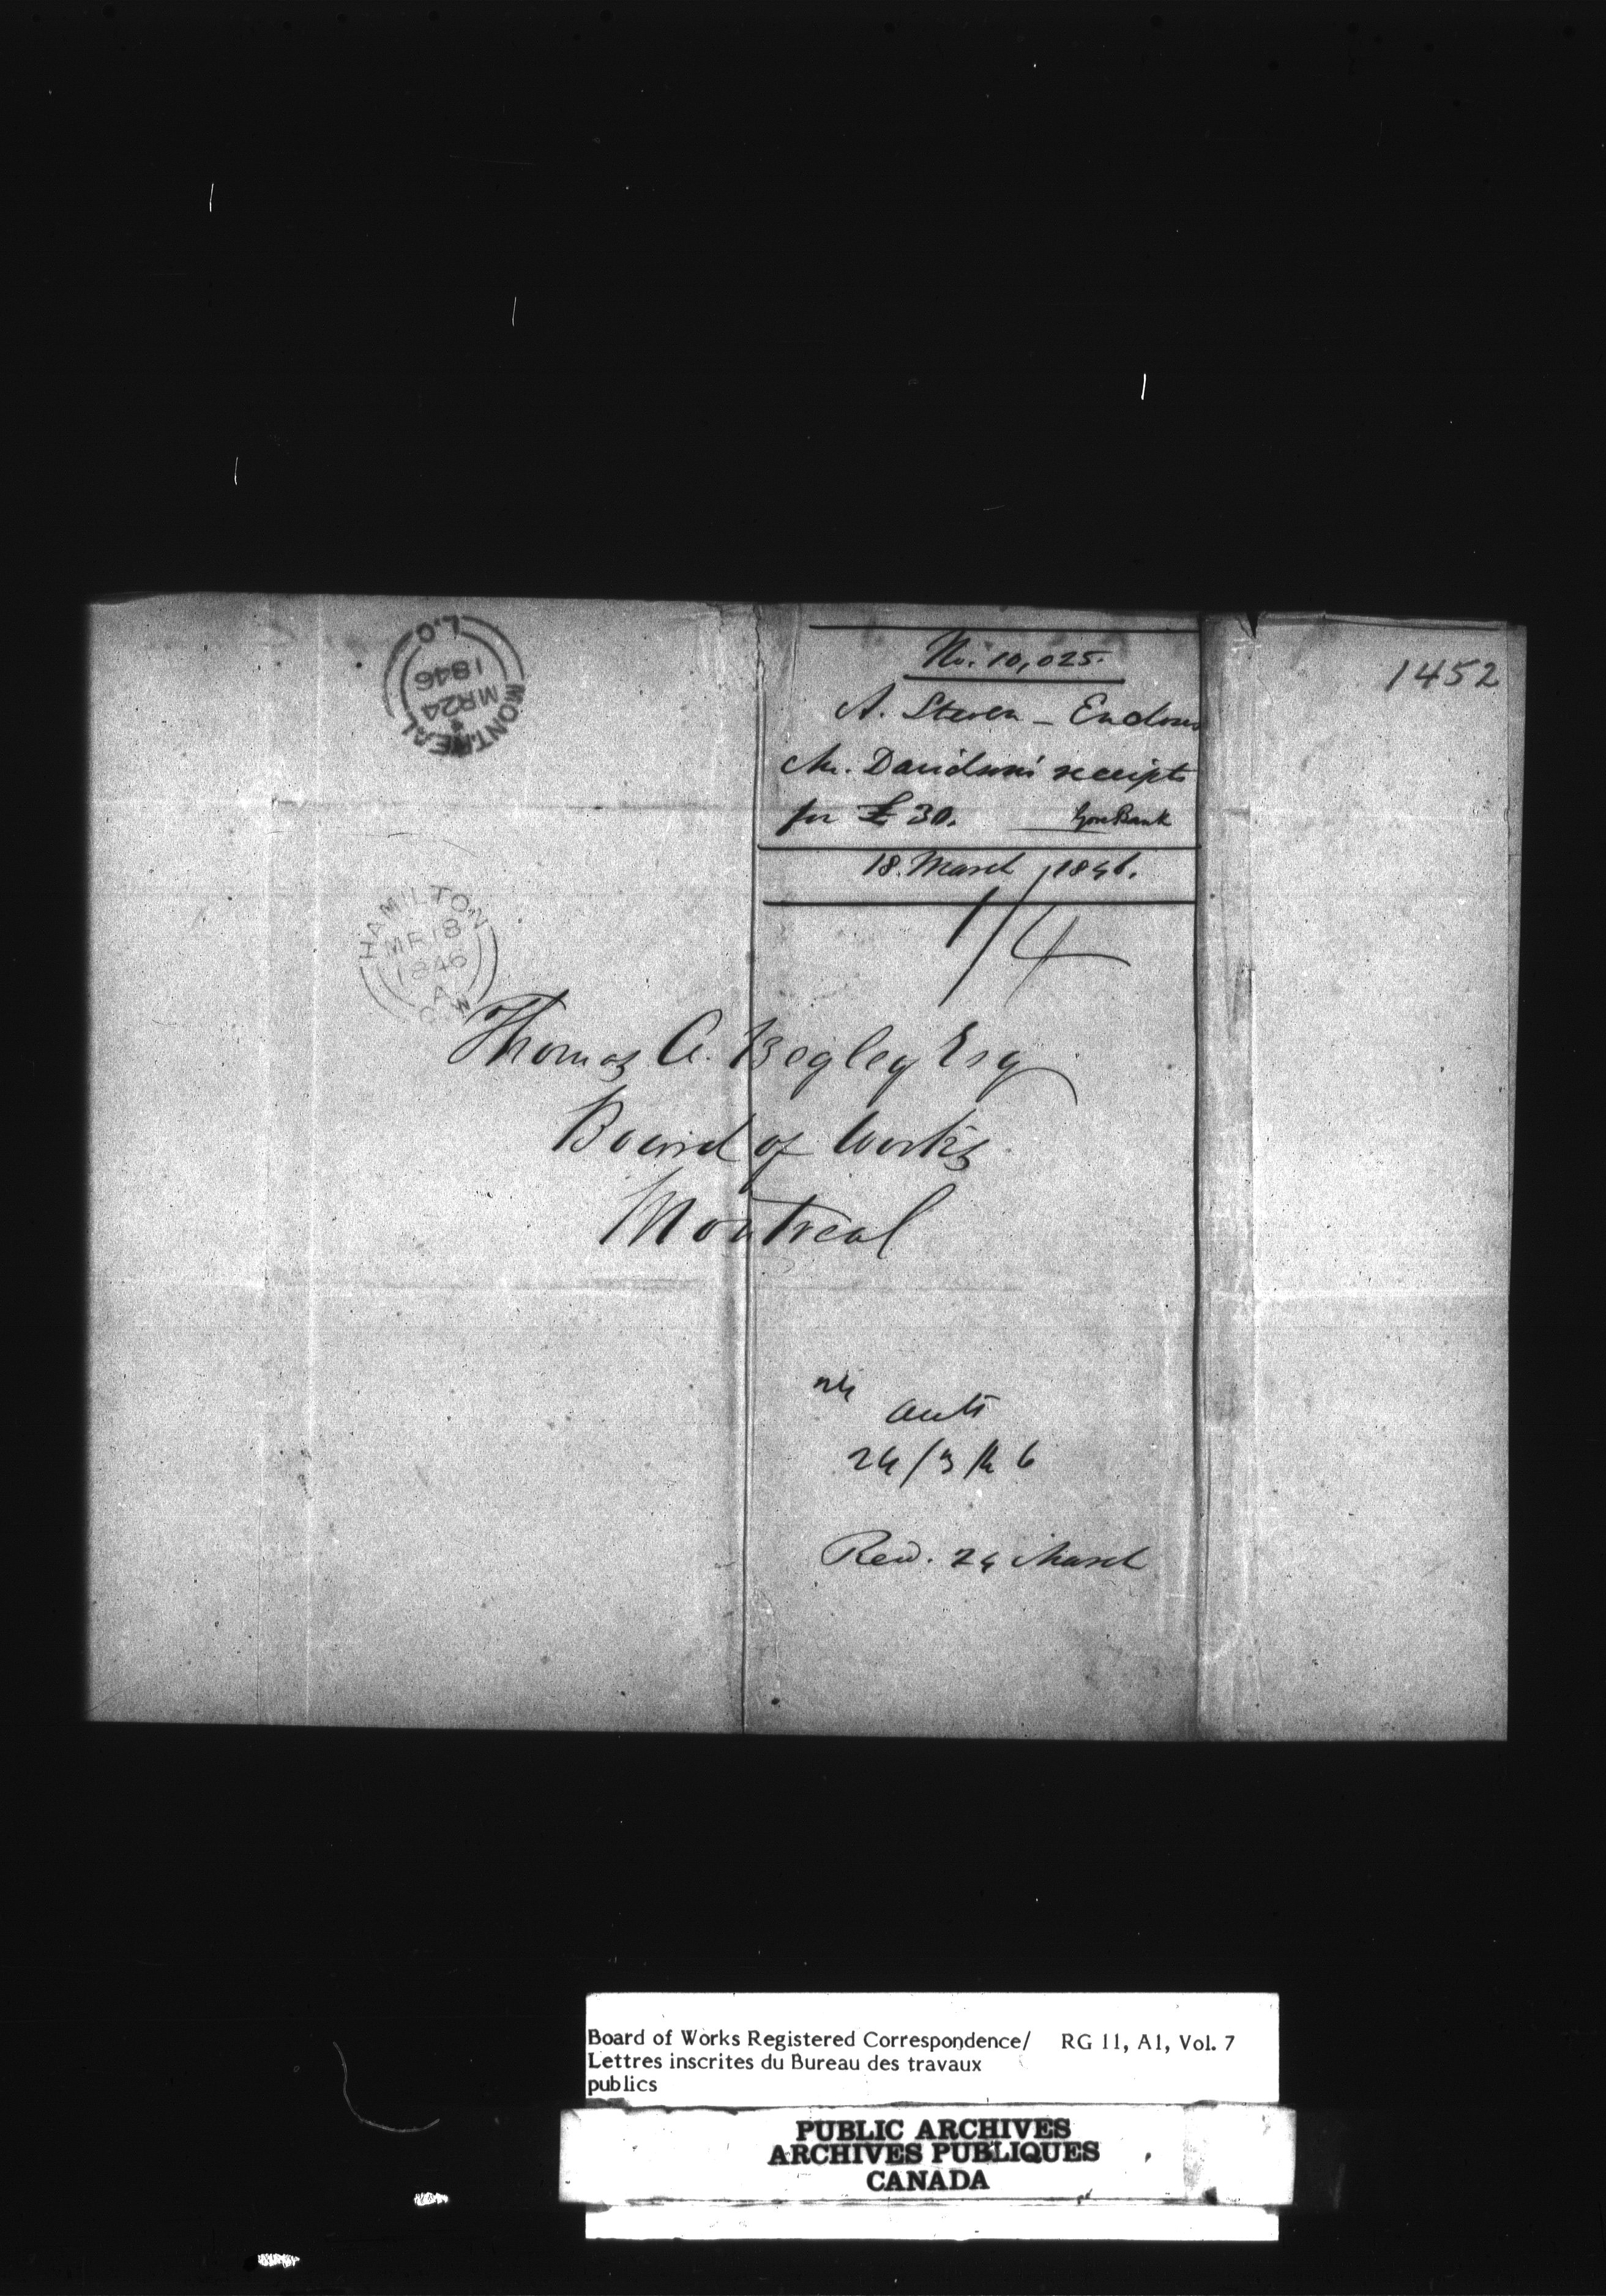 MONTREAL
MR 24
1846
L.C.
No. 10,025.
1452
A. Steven - Encloses
Mr. Davidson's receipts
for £30. Gore Bank
18. March 1846.
1/4
HAMILTON
MR 18
1846
A
C.W
Thomas A. Begley Esq
Board of Works
Montreal
24/3/46
Recd. 24 March
Board of Works Registered Correspondence/ RG 11, A1, Vol. 7
Lettres inscrites du Bureau des travaux
publics
PUBLIC ARCHIVES
ARCHIVES PUBLIQUES
CANADA